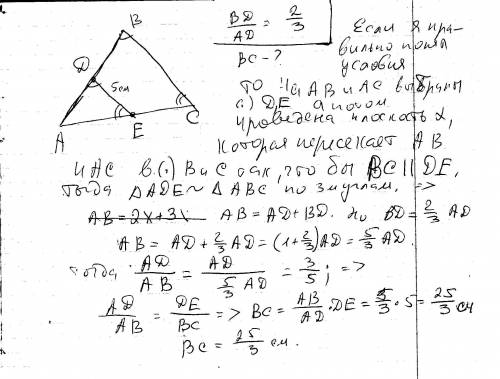 B
D
5см
A
E
C
BD/AD = 2/3
BC - ?
Если я пра-
вильно понял
условия
то на AB и AC выбраны
(.) D, E а потом
проведена плоскость α,
которая пересекает AB
и AC в (.) B и C так, что бы BC || DE,
тогда △ADE ~ △ABC по 3м углам, =>
AB = 2x + 3x AB = AD + BD. Но BD = 2/3 AD
AB = AD + 2/3 AD = (1 + 2/3) AD = 5/3 AD.
тогда AD/AB = AD/(5/3 AD) = 3/5; =>
AD/AB = DE/BC => BC = AB/AD · DE = 5/3 · 5 = 25/3 см
BC = 25/3 см.